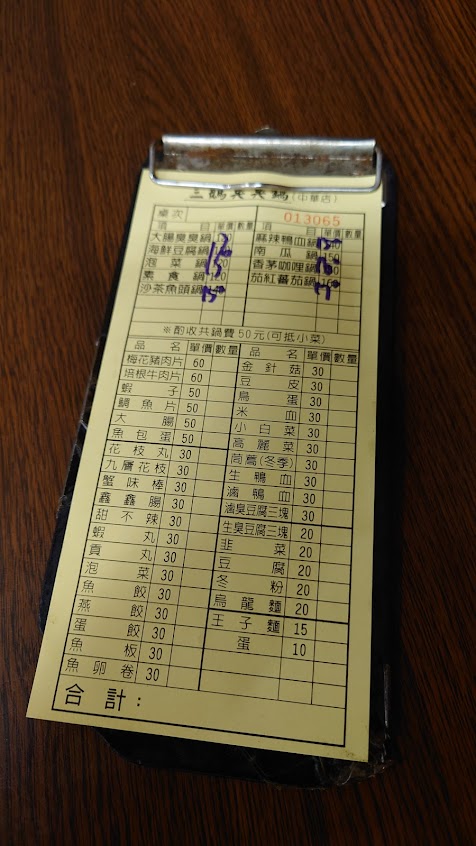 三媽臭臭鍋(中華店)
桌次 013065
項目 單價 數量 項目 單價 數量
大腸臭臭鍋 麻辣鴨血鍋
海鮮豆腐鍋 南瓜鍋
泡菜鍋 香茅咖哩鍋
素食鍋 茄紅蕃茄鍋
沙茶魚頭鍋
※酌收共鍋費50元(可抵小菜)
品名 單價 數量 品名 單價 數量
梅花豬肉片 60 金針菇 30
培根牛肉片 60 豆皮 30
蝦子 50 鳥蛋 30
鯛魚片 50 米血 30
大腸 50 小白菜 30
魚包蛋 50 高麗菜 30
花枝丸 30 茼蒿(冬季) 30
九層花枝 30 生鴨血 30
蟹味棒 30 滷鴨血 30
鑫鑫腸 30 滷臭豆腐三塊 30
甜不辣 30 生臭豆腐三塊 20
蝦丸 30 韭菜 20
貢丸 30 豆腐 20
泡菜 30 冬粉 20
魚餃 30 烏龍麵 20
燕餃 30 王子麵 15
蛋餃 30 蛋 10
魚板 30
魚卵卷 30
合計：